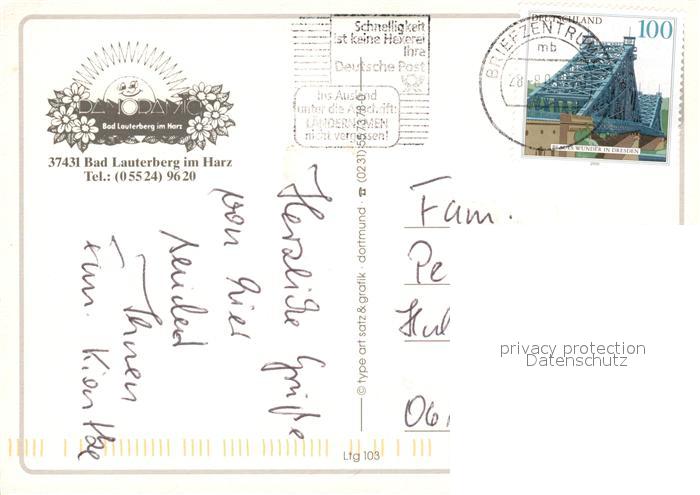 Schnelligkeit
ist keine Hexerei
Ihre
Deutsche Post
Ins Ausland
unter die Anschrift:
LÄNDERNAMEN
nicht vergessen!
BRIEFZENTRUM
mb
28
DEUTSCHLAND
100
BLAUES WUNDER IN DRESDEN
2000
PANORAMIC
Bad Lauterberg im Harz
37431 Bad Lauterberg im Harz
Tel.: (05524) 9620
Herzliche Grüße
von hier
sendet
Ihnen
Fam.
© type art satz & grafik · dortmund · ☎ (0231) 557378-0
Lfg 103
Fam.
Pe
Hul
06
privacy protection
Datenschutz